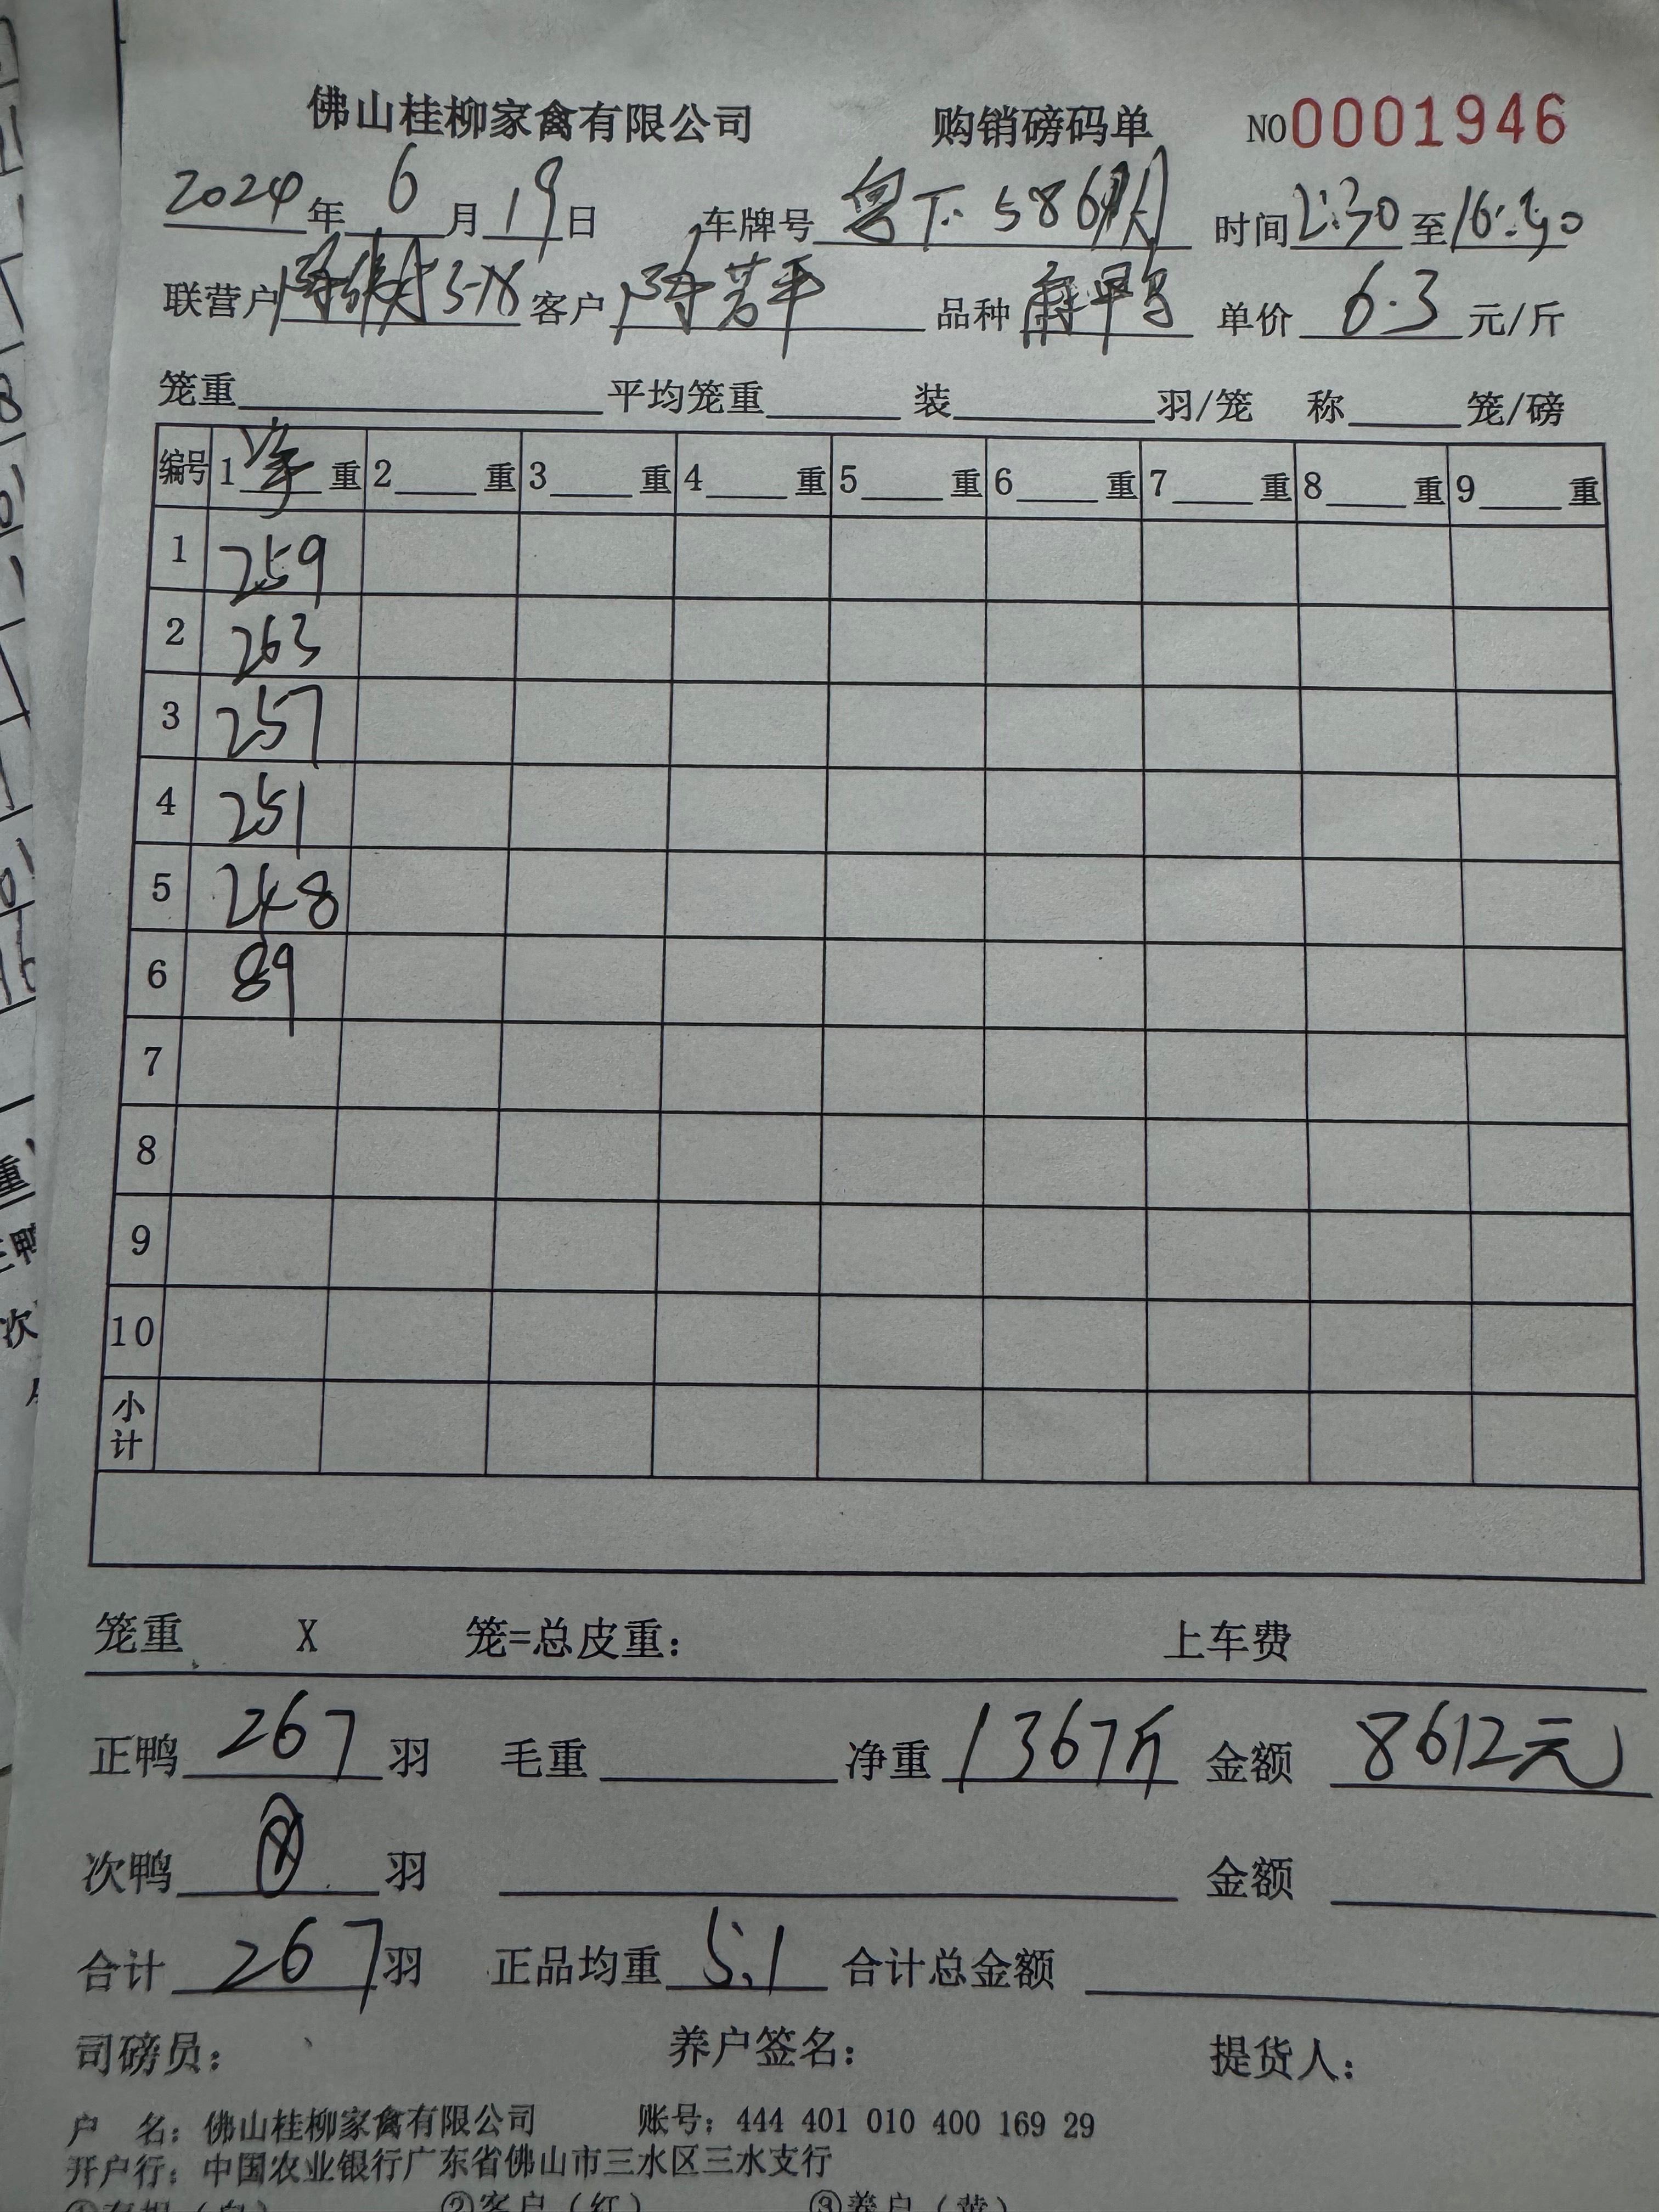 佛山桂柳家禽有限公司 购销磅码单 NO0001946
2024年 6 月 19 日 车牌号 586 时间 2:30 至 16:30
联营户 客户 陈芳平 品种 麻鸭 单价 6.3 元/斤
笼重 平均笼重 装 羽/笼 称 笼/磅
编号 1 净 重 2 重 3 重 4 重 5 重 6 重 7 重 8 重 9 重
1 259
2 263
3 257
4 251
5 248
6 89
7
8
9
10
小计
笼重 X 笼=总皮重: 上车费
正鸭 267 羽 毛重 净重 1367斤 金额 8612元
次鸭 羽 金额
合计 267 羽 正品均重 5.1 合计总金额
司磅员: 养户签名: 提货人:
户 名: 佛山桂柳家禽有限公司 账号: 444 401 010 400 169 29
开户行: 中国农业银行广东省佛山市三水区三水支行
②客户(红) ③养户(黄)